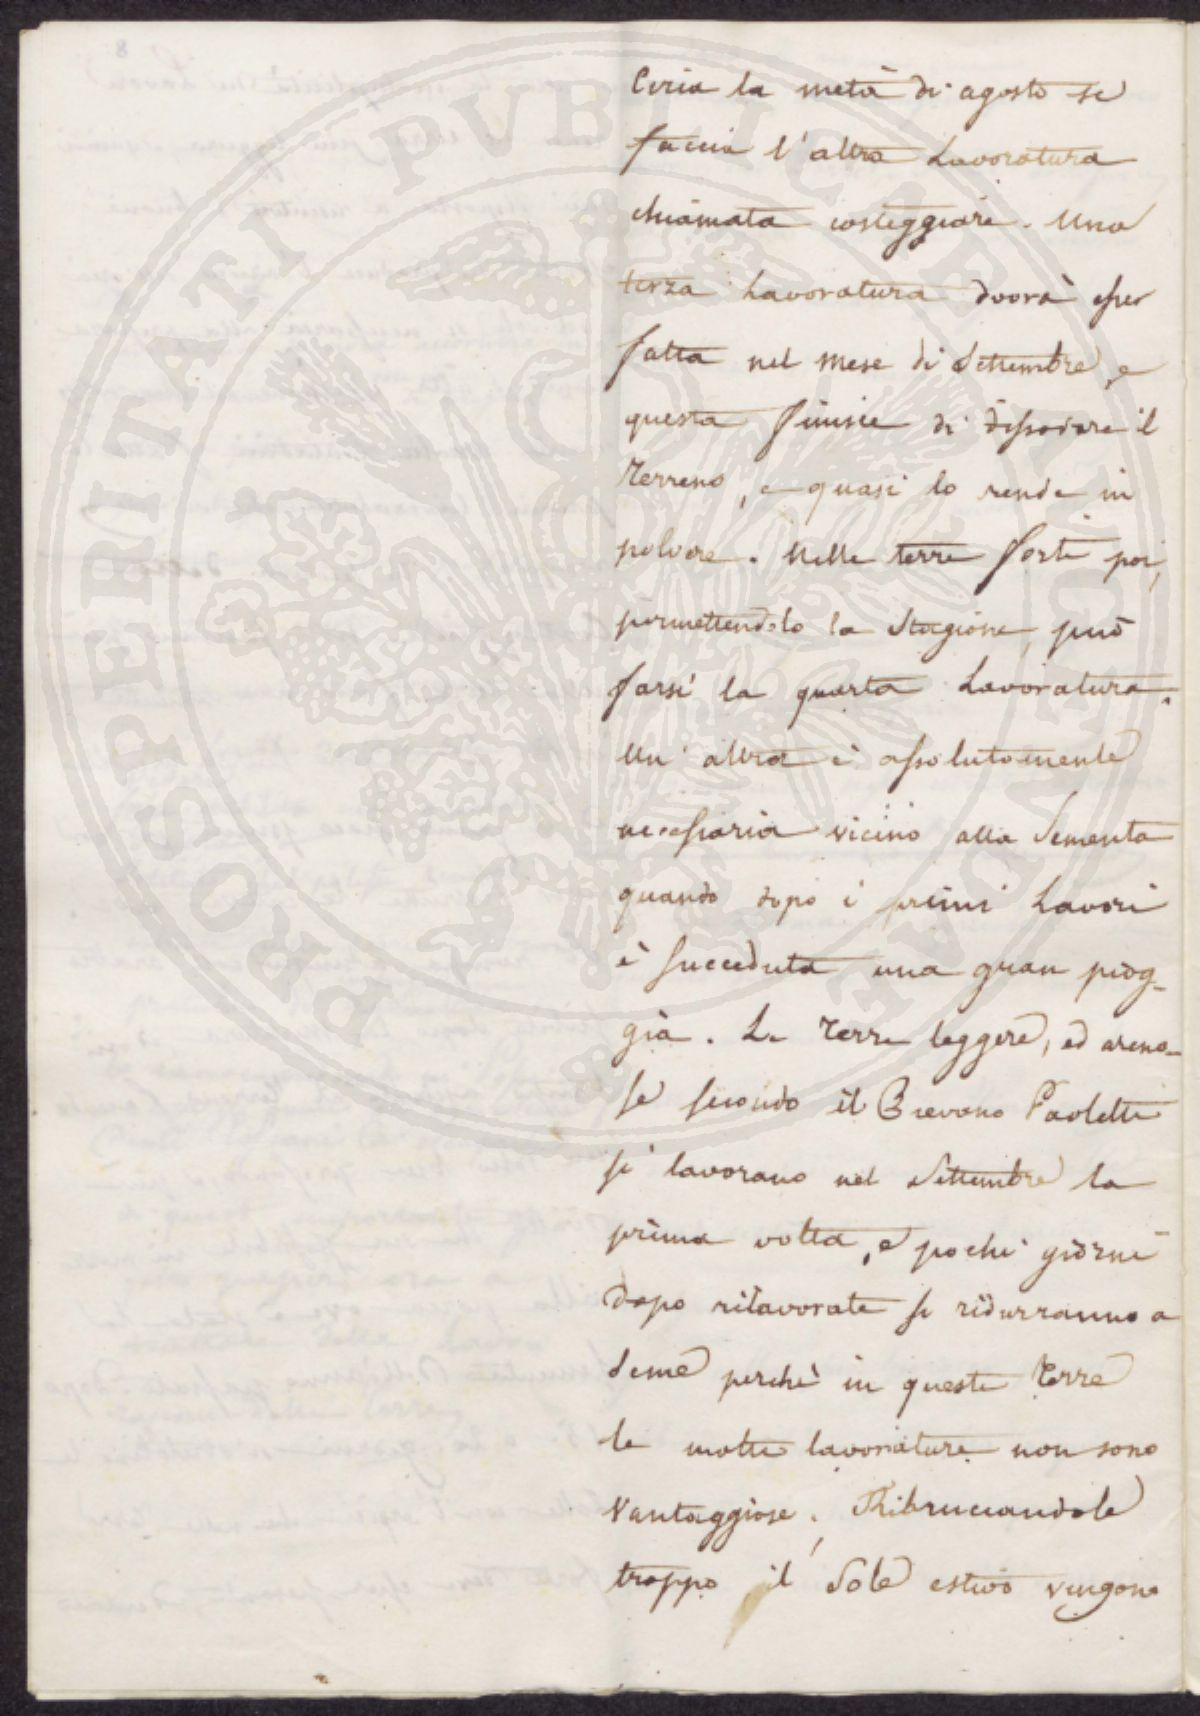 Circa la metà di agosto si
faccia l'altra Lavoratura
chiamata costeggiare. Una
terza Lavoratura dovrà esser
fatta nel Mese di Settembre, e
questa finisce di dissodare il
Terreno, e quasi lo rende in
polvere. Nelle terre forti poi,
permettendolo la Stagione, può
farsi la quarta Lavoratura.
Un' altra è assolutamente
necessaria vicino alla Sementa
quando dopo i primi Lavori
è succeduta una gran piog-
gia. Le Terre leggere, ed areno-
se secondo il Paoletti
si lavorano nel Settembre la
prima volta, e pochi giorni
dopo rilavorate si ridurranno a
Seme perchè in queste Terre
le molte lavorature non sono
Vantaggiose;
troppo il Sole estivo vengono
PROSPERITATI PVBLICAE AVGENDAE
8